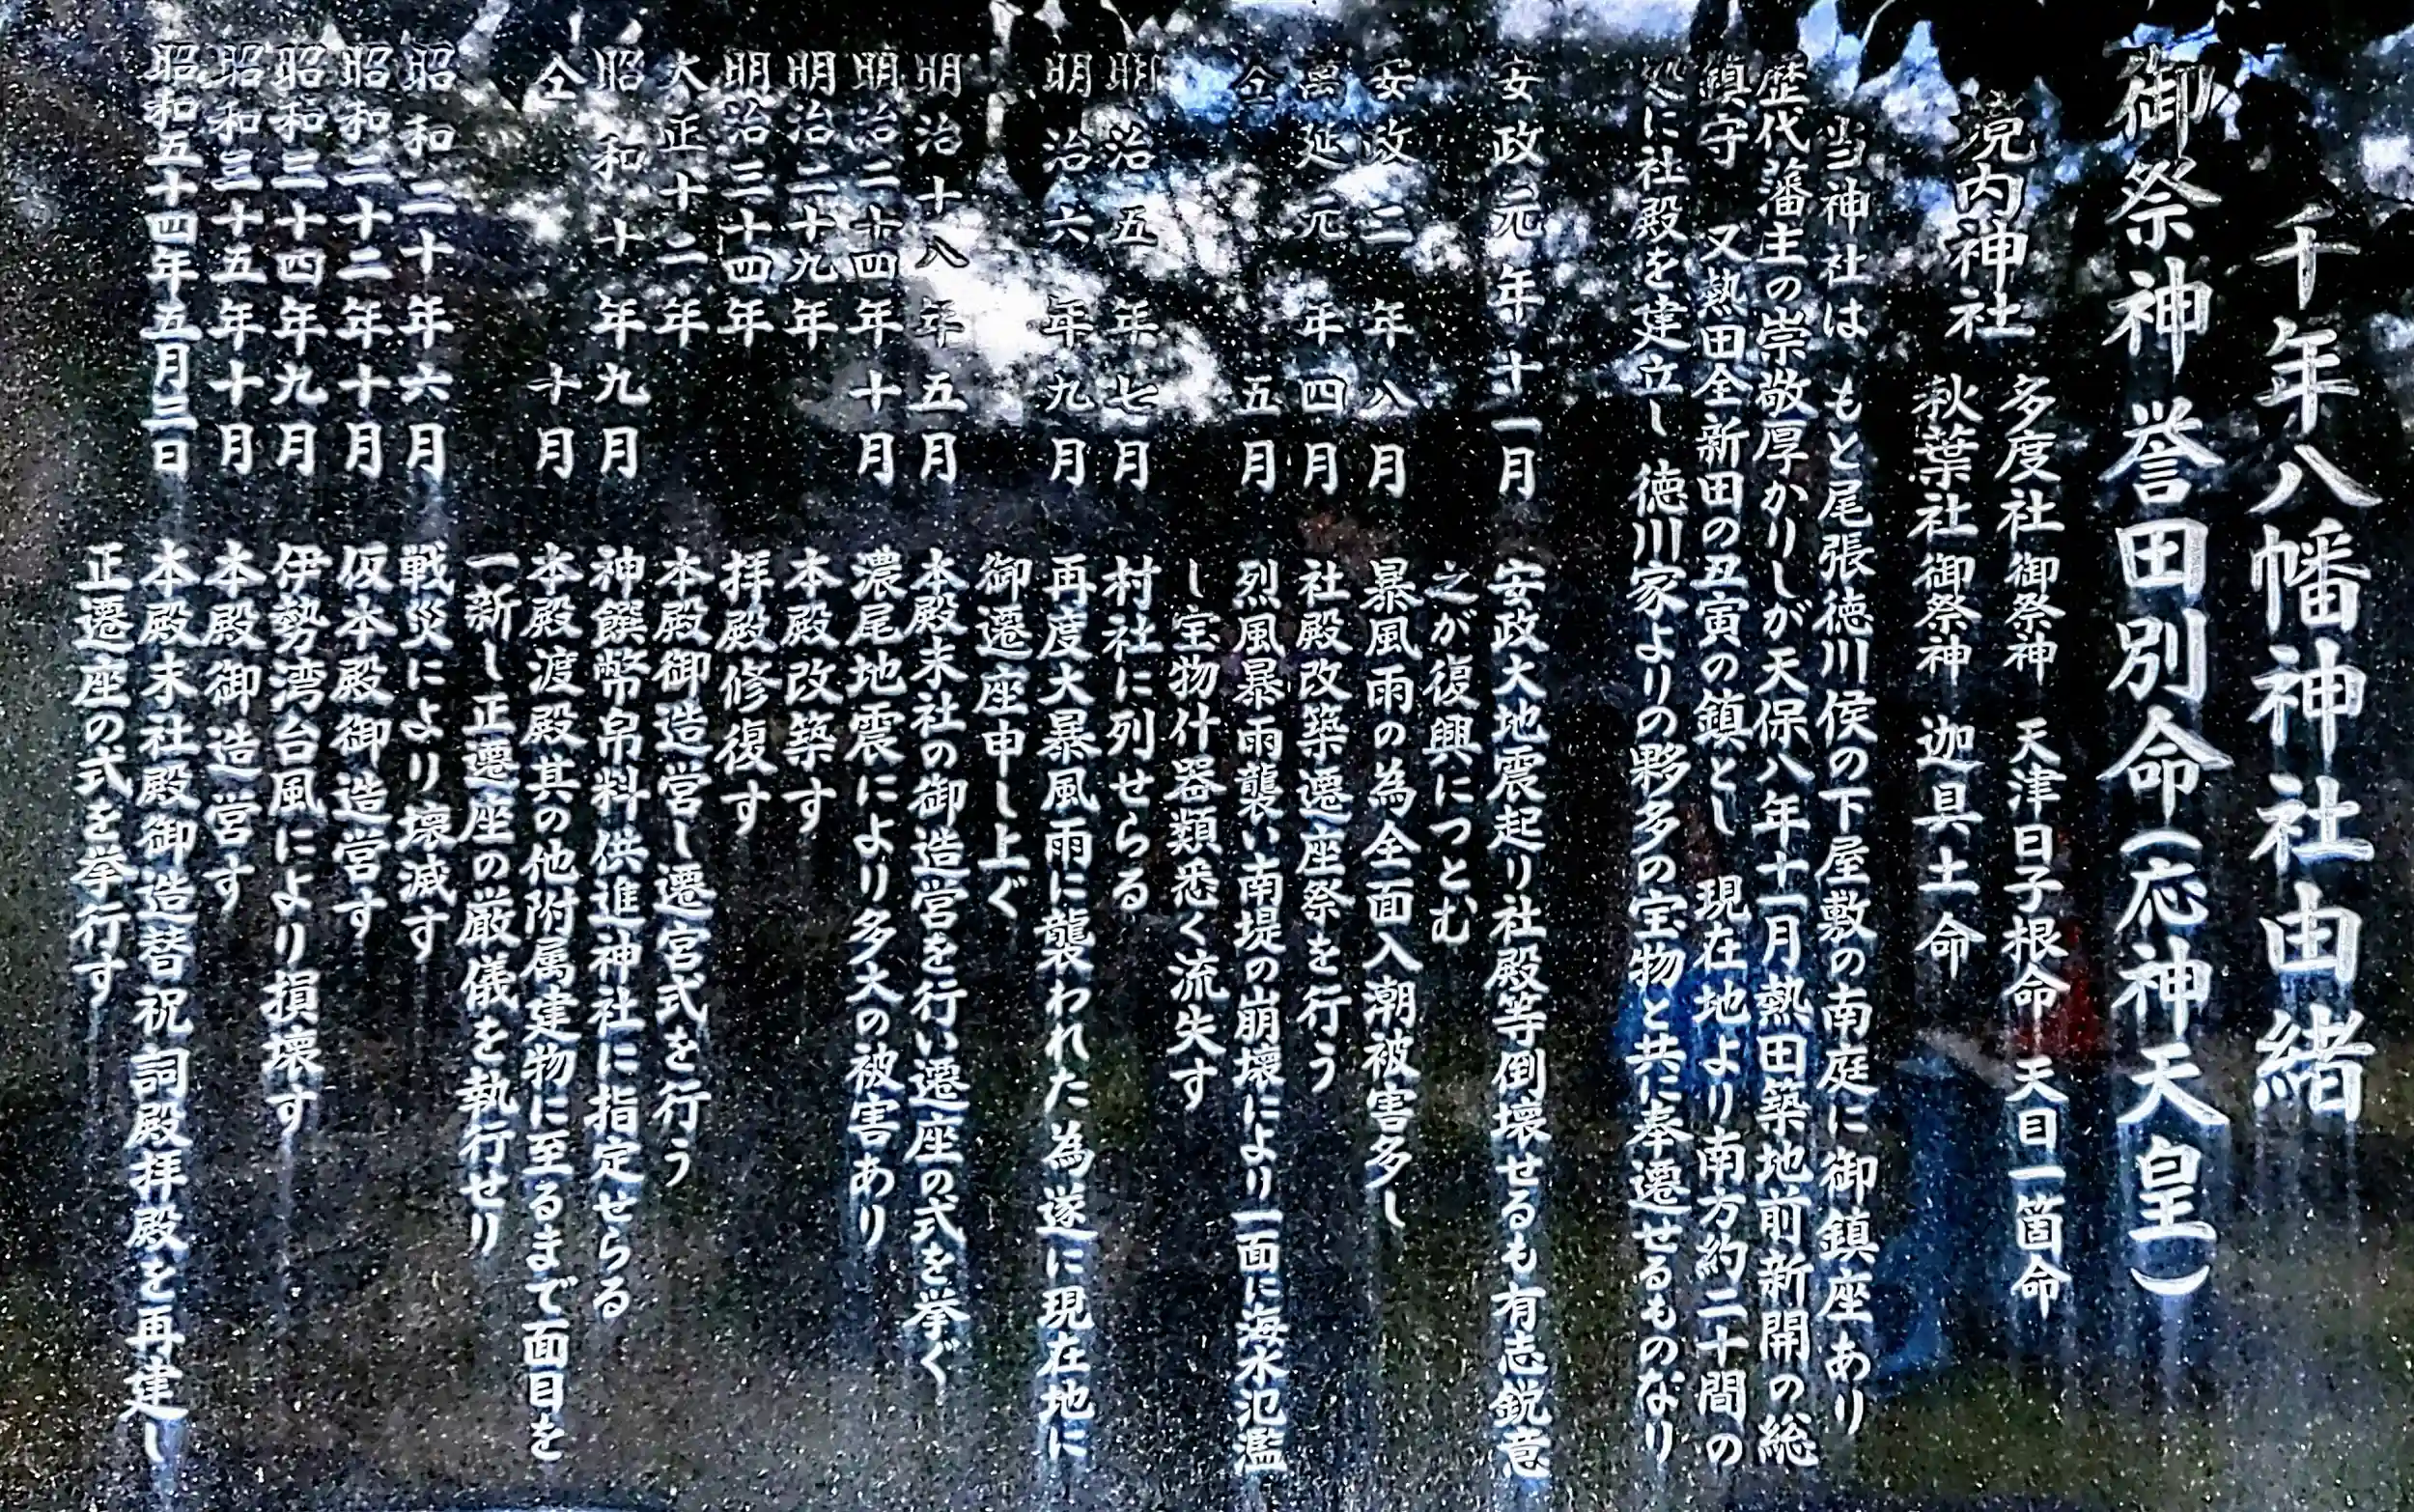 千年八幡神社由緒
御祭神 誉田別命(応神天皇)
境内神社
多度社 御祭神 天津日子根命 天目一箇命
秋葉社 御祭神 迦具土命
当神社は もと尾張徳川侯の下屋敷の南庭に御鎮座あり
歴代藩主の崇敬厚かりしが天保八年十一月熱田築地前新開の総
鎮守 又熱田全新田の丑寅の鎮とし 現在地より南方約二十間の
処に社殿を建立し 徳川家よりの夥多の宝物と共に奉遷せるものなり
安政元年十一月 安政大地震起り社殿等倒壊せるも有志鋭意
之が復興につとむ
安政二年八月 暴風雨の為全面入潮被害多し
萬延元年四月 社殿改築遷座祭を行う
仝 五月 烈風暴雨襲い南堤の崩壊により一面に海水氾濫
し宝物什器類悉く流失す
明治五年七月 村社に列せらる
明治六年九月 再度大暴風雨に襲われた為遂に現在地に
御遷座申し上ぐ
明治十八年五月 本殿末社の御造営を行い遷座の式を挙ぐ
明治二十四年十月 濃尾地震により多大の被害あり
明治二十九年 本殿改築す
明治三十四年 拝殿修復す
大正十二年 本殿御造営し遷宮式を行う
昭和十年九月 神饌幣帛料供進神社に指定せらる
仝 十月 本殿渡殿其の他附属建物に至るまで面目を
一新し正遷座の厳儀を執行せり
昭和二十年六月 戦災により壊滅す
昭和二十二年十月 仮本殿御造営す
昭和三十四年九月 伊勢湾台風により損壊す
昭和三十五年十月 本殿御造営す
昭和五十四年五月三日 本殿末社殿御造替祝詞殿拝殿を再建し
正遷座の式を挙行す